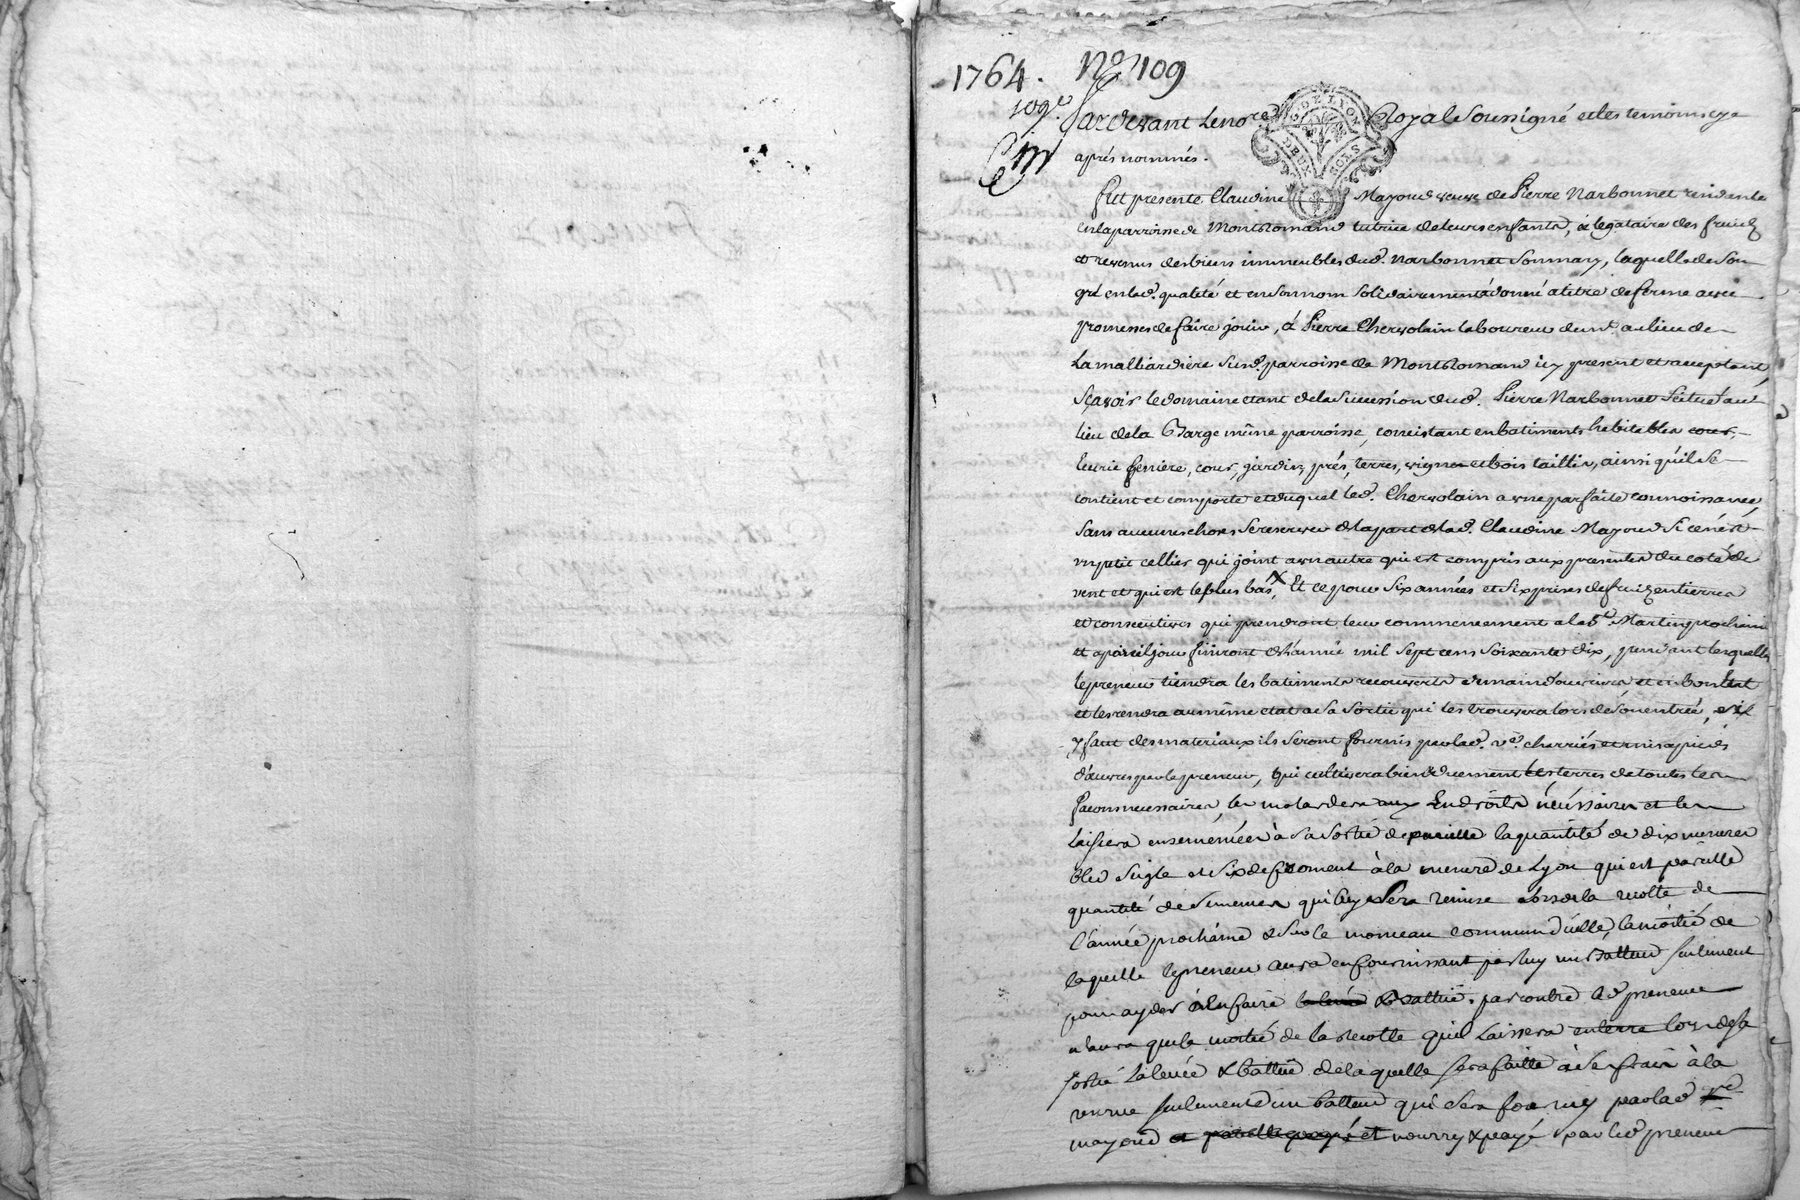 1764. N° 109
109e
Pardevant Le not.re Royal Soussigné et les temoins cy
G. DE LYON
DEUX SOLS
aprés nommés.
fut presente Claudine Mayoud veuve de Pierre Narbonnet residente
en la parroisse de Montromand tutrice de leurs enfants, & legataire des fruids
et revenus des biens immeubles dud. Narbonnet Son mary, laquelle de Son
gré en lad. qualité et en Son nom Solidairement a donné a titre de ferme avec
promesses de faire jouir, á Pierre Chervolain laboureur demt. au lieu de
La malliardiere Susd. parroisse de Montromand icy present et acceptant,
Sçavoir le domaine etant de la Succession dud. Pierre Narbonnet Scitué au
lieu de la Barge même parroisse, consistant en batiments habitables cour,
feniere, cour, jardin, prés, terres, vignes et bois taillis, ainsi qu'il Se
contient et comporte et duquel led. Chervolain a une parfaite connoissance,
Sans aucune chose Se reserver de la part de lad. Claudine Mayoud Si ce n'est
un petit cellier qui joint a un autre qui est compris aux presentes du coté de
vent et qui est le plus bas, X Et ce pour Six années et Six prises de fruids entieres
et consecutives qui prendront leur commencement a la St. Martin prochain
et a pareil jour finiront de l'année mil Sept cens Soixante dix, pendant lesquelles
le preneur tiendra les batiments recouverts de main d'ouvriers et en bon Etat
et les rendra au même etat a Sa Sortie qu'il les trouvera lors de Son entrée, et s'il
y faut des materiaux ils Seront fournis par lad. ve. charriés et mis a pied
d'œuvres par le preneur, qui cultivera bien & duement les terres de toutes leurs
façons necessaires, les aux Endroits nécéssaires et les
Laissera ensemencées à Sa Sortie de pareille la quantité de dix mesures
bled Seigle et Six de froment à la mesure de Lyon qui est pareille
quantité de Semences qui luy Sera remise lors de la recolte de
l'année prochaine & Sur le monceau commun d'icelle, la moitié de
laquelle le preneur aura en fournissant par luy un Batteur Seulement
pour ayder à en faire la levée & Battue. par contre led preneur
n'aura que la moitié de la recolte qu'il Laissera en terre lors de Sa
Sortie La levée & battue de laquelle Sera faitte à Ses frais à la
reserve Seulement d'un batteur qui Sera fourny par lad ve
mayoud et nourry & payé par led preneur